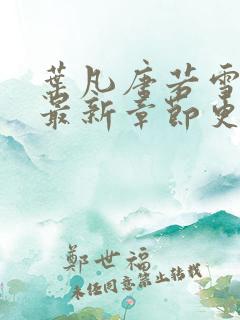 葉凡唐若雪
最新章節更
鄭世福
未经同意禁止转载